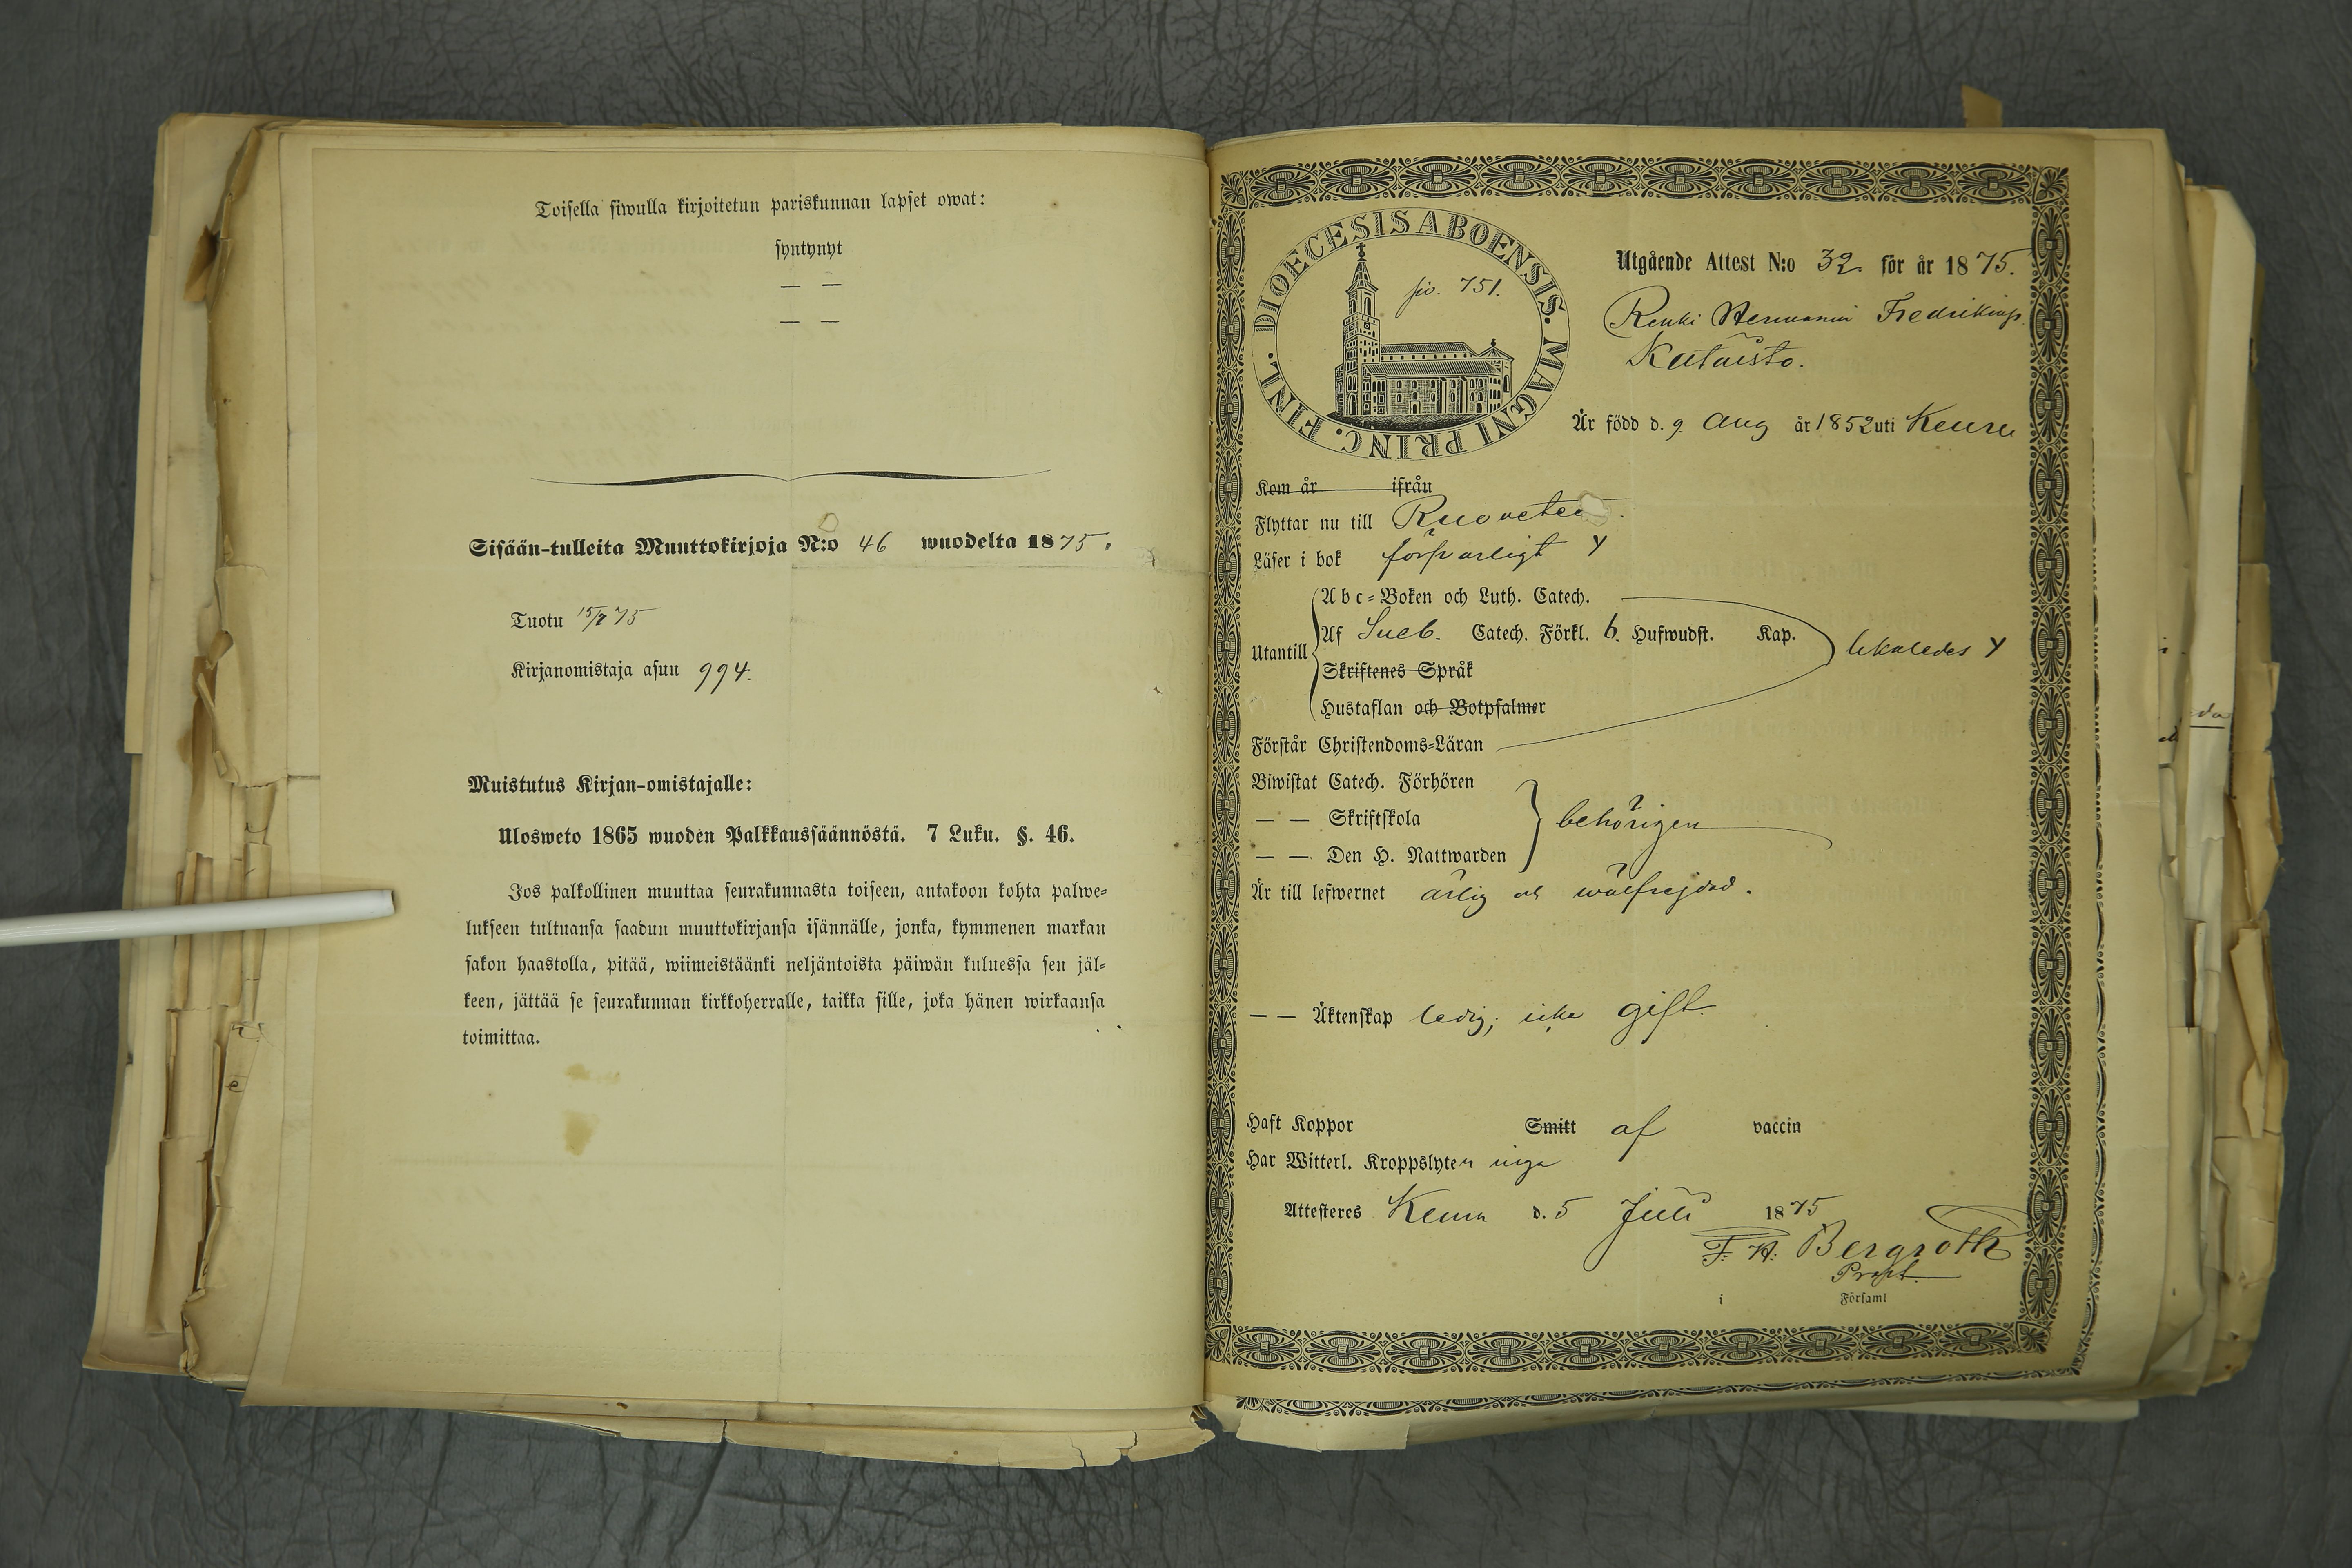 Toisella siwulla kirjoitetun pariskunnan lapset owat:
syntynyt
— —
— —
Sisään-tulleita Muuttokirjoja N:o 46 wuodelta 1875.
Tuotu 15/7 75
Kirjanomistaja asuu 994.
Muistutus Kirjan-omistajalle:
Ulosweto 1865 wuoden Palkkaussäännöstä. 7 Luku. §. 46.
Jos palkollinen muuttaa seurakunnasta toiseen, antakoon kohta palwe-
lukseen tultuansa saadun muuttokirjansa isännälle, jonka, kymmenen markan
sakon haastolla, pitää, wiimeistäänki neljäntoista päiwän kuluessa sen jäl-
keen, jättää se seurakunnan kirkkoherralle, taikka sille, joka hänen wirkaansa
toimittaa.
DIOECESIS ABOENSIS. MAGNI PRINC. FINL.
siv. 751.
Utgående Attest N:o 32 för år 1875.
Renki Hermanni Fredrikinp.
Kutaisto.
Är född d. 9 Aug år 1852 uti Keuru
Kom år ifrån
Flyttar nu till Ruovesi
Läser i bok försvarligt Y
Utantill
Abc-Boken och Luth. Catech.
Af Sueb. Catech. Förkl. 6. Hufwudst. Kap.
Skriftenes Språk
Hustaflan och Botpsalmer
likaledes Y
Förstår Christendoms-Läran
Biwistat Catech. Förhören
— — Skriftskola
— — Den H. Nattwarden
behörigen
Är till lefwernet ärlig och wälfrejdad.
— — Äktenskap ledig; icke gift
Haft Koppor Smitt af vaccin
Har Witterl. Kroppslyten inga
Attesteres Keuru d. 5 Juli 1875
F. H. Bergroth
Prost
i Församl